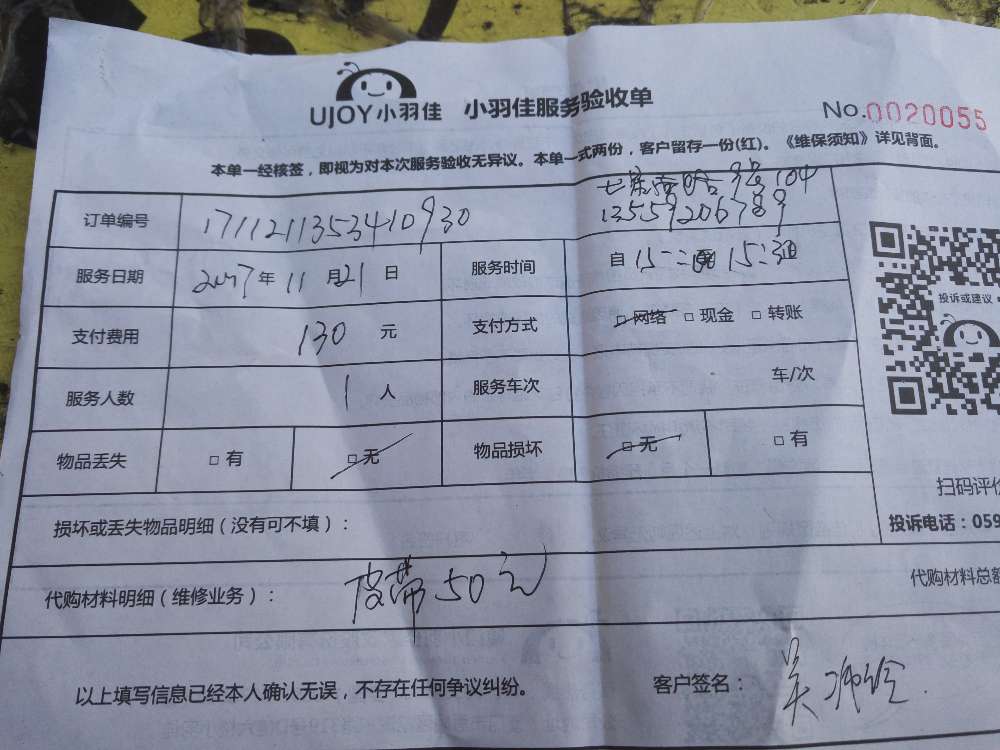 UJOY小羽佳 小羽佳服务验收单
No.0020055
本单一经核签，即视为对本次服务验收无异议。本单一式两份，客户留存一份(红)。《维保须知》详见背面。
9号104
13559206789
订单编号 1711211353410930
服务日期 2017年11月21日 服务时间 自 15:
支付费用 130 元 支付方式 □网络 □现金 □转账
服务人数 1 人 服务车次 车/次
物品丢失 □有 □无 物品损坏 □无 □有
投诉或建议
扫码评价
投诉电话：059
损坏或丢失物品明细（没有可不填）：
代购材料明细（维修业务）： 皮带50元 代购材料总额
以上填写信息已经本人确认无误，不存在任何争议纠纷。 客户签名： 吴